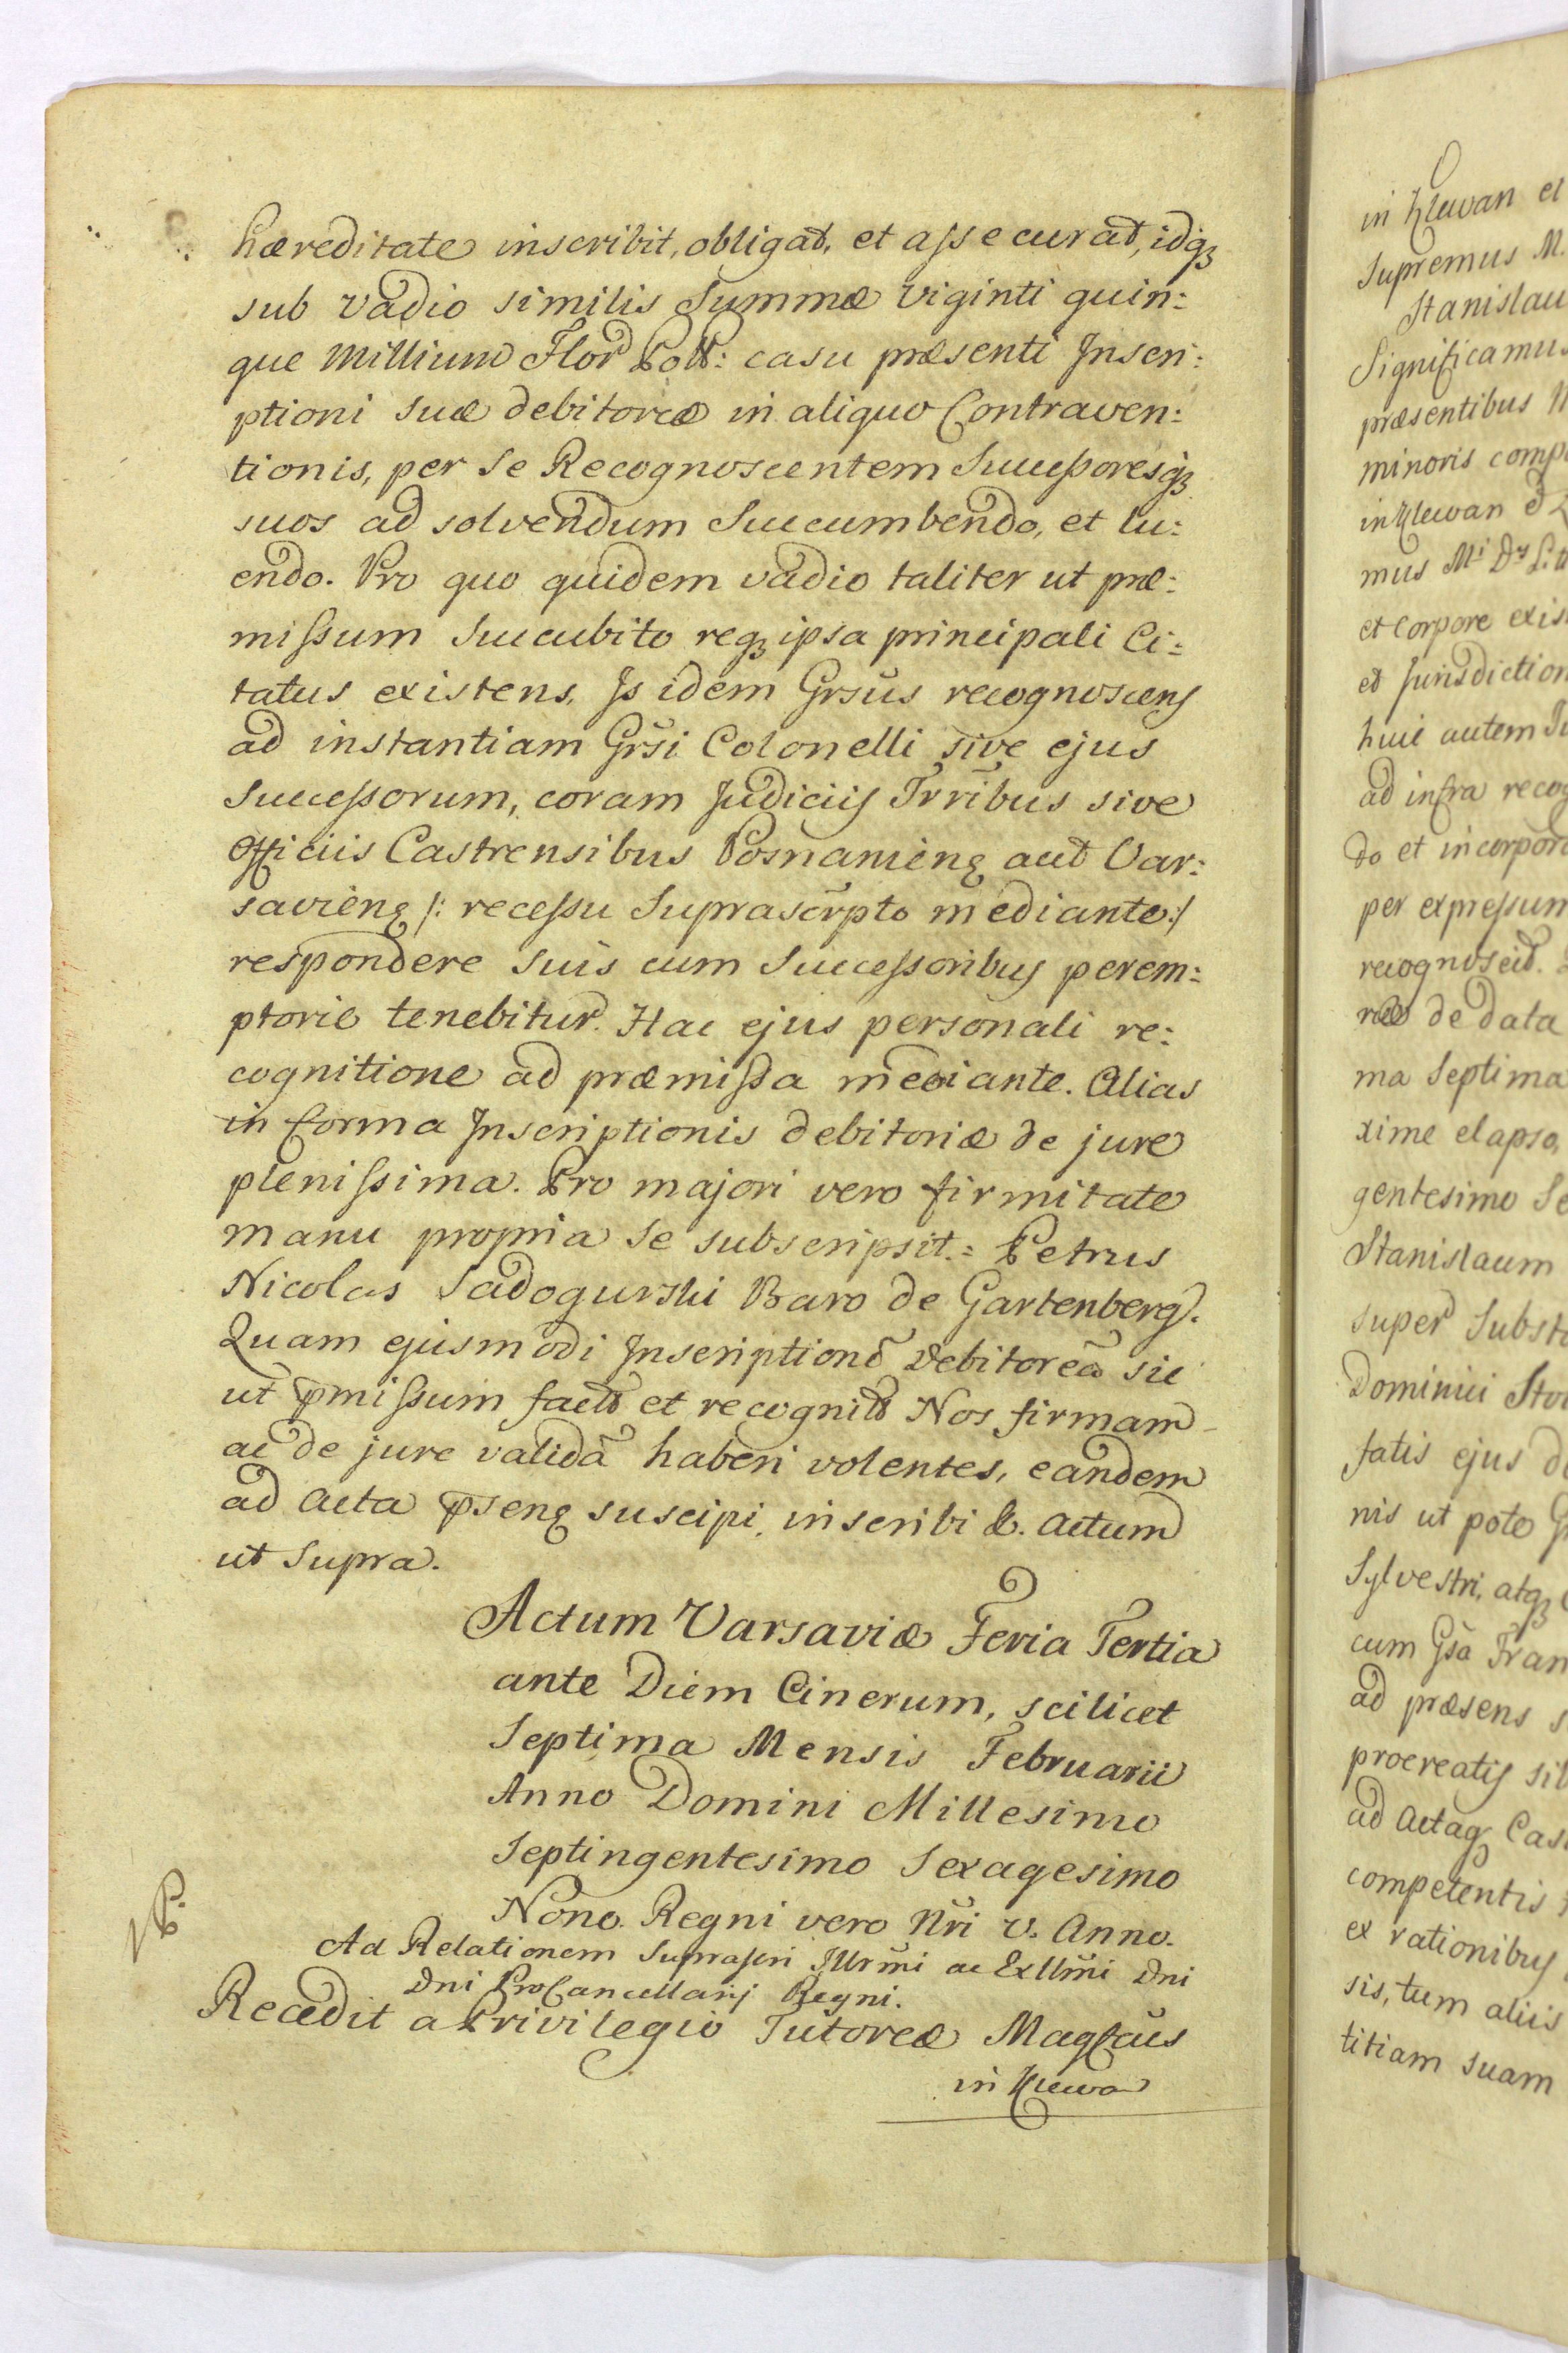 hæreditate inscribit, obligat, et assecurat, idqꝫ
sub vadio similis Summæ viginti quin:
que Millium Flor Poll: casu præsenti Inscri:
ptioni suæ debitoreæ in aliquo Contraven:
tionis, per se Recognoscentem Successoresqꝫ
suos ad solvendum Succumbendo, et lu:
endo. Pro quo quidem vadio taliter ut præ:
missum Succubito reqꝫ ipsa principali Ci:
tatus existens, Is idem Grsus recognoscens
ad instantiam Grsi Colonelli sive ejus
Successorum, coram Judiciis Trribus sive
Officiis Castrensibus Posnanienꝫ aut Var:
savienꝫ /: recessu Suprascrpto mediante:/
respondere suis cum Successoribus perem:
ptorie tenebitur. Hac ejus personali re:
cognitione ad præmissa mediante. Alias
in forma Inscriptionis debitoriæ de jure
plenissima. Pro majori vero firmitate
manu propria se subscripsit.= Petrus
Nicolas Sadogurski Baro de Gartenberg.
Quam ejusmodi Inscriptionē Debitoreā sic
ut p̄missum fact et recognit Nos firmam
ac de jure validā haberi volentes, eandem
ad Acta p̄senꝫ suscipi, inscribi &. Actum
ut Supra.
Actum Varsaviæ Feria Tertia
ante Diem Cinerum, scilicet
Septima Mensis Februarii
Anno Domini Millesimo
Septingentesimo Sexagesimo
Nono. Regni vero Nri V. Anno.
Ad Relationem Suprascri Illrmi ac Exllmi Dni
Dni ProCancellarij Regni.
Recedit a Privilegio Tutoreæ Magfcus
in Klewa
in Klewan et
Supremus M.
Stanislau
Significamus
præsentibus
minoris comp
in Klewan
mus Mi Ds
et Corpore exis
et Jurisdiction
huic autem
ad infra recog
do et incorpora
per expressum
recognoscit.
de data
ma Septima
xime elapso,
gentesimo Se
Stanislaum
super Subst
Dominici
fatis ejus
nis ut pote
Sylvestri, atqꝫ
cum Gsa Fran
ad præsens
procreatis
ad Actaqꝫ Cas
competentis
ex rationibus
sis, tum aliis
titiam suam